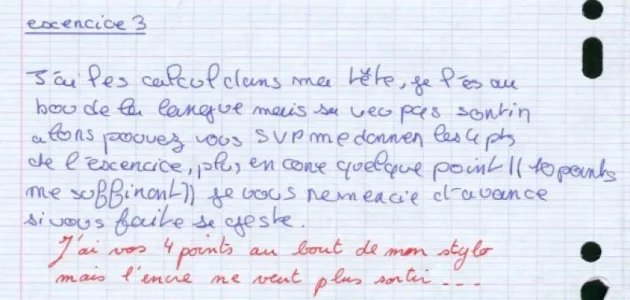 exercice 3
J'ai les calcul dans ma tête, je l'es au
bou de la langue mais sa veu pas sortir
alors pouvez vous SVP me donner les 4 pts
de l'exercice, plus encore quelque point (( 10 points
me suffiront)) je vous remercie d'avance
si vous faite se geste.
J'ai vos 4 points au bout de mon stylo
mais l'encre ne veut plus sortir ---